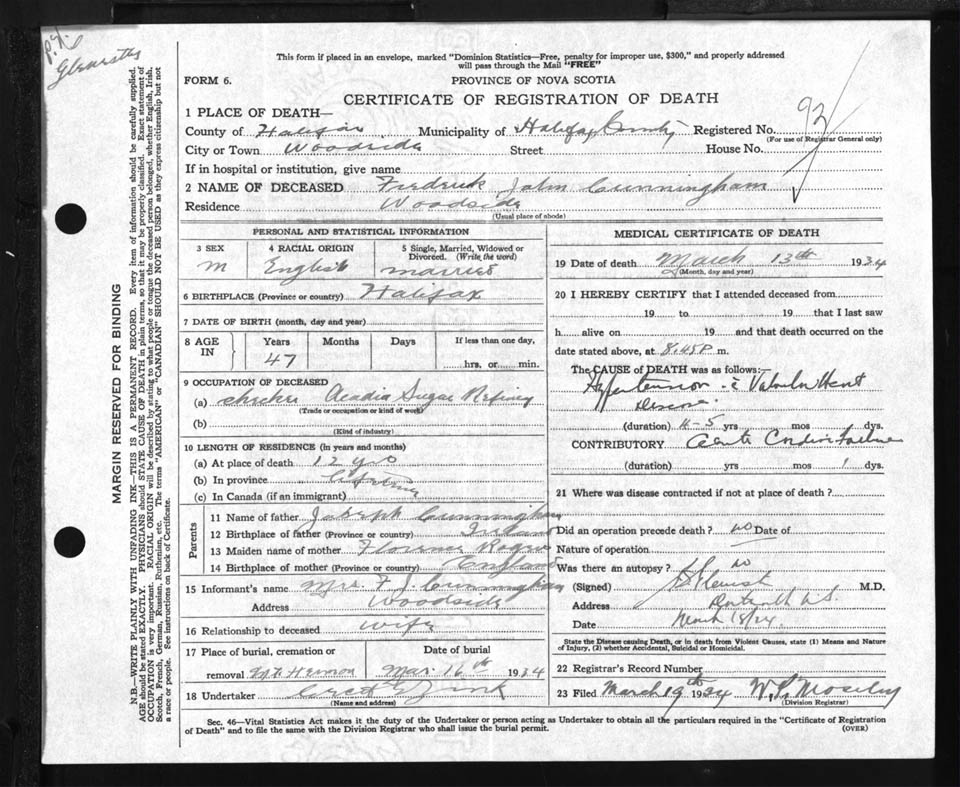 This form if placed in an envelope, marked "Dominion Statistics—Free, penalty for improper use, $300," and properly addressed
will pass through the Mail "FREE"
FORM 6.
PROVINCE OF NOVA SCOTIA
CERTIFICATE OF REGISTRATION OF DEATH
93
1 PLACE OF DEATH—
County of Halifax Municipality of Halifax County Registered No.
(For use of Registrar General only)
City or Town Woodside Street House No.
If in hospital or institution, give name
2 NAME OF DECEASED Frederick John Cunningham
Residence Woodside
(Usual place of abode)
PERSONAL AND STATISTICAL INFORMATION
3 SEX 4 RACIAL ORIGIN 5 Single, Married, Widowed or
Divorced. (Write the word)
M English married
6 BIRTHPLACE (Province or country) Halifax
7 DATE OF BIRTH (month, day and year)
8 AGE IN Years Months Days If less than one day,
47 hrs. or min.
9 OCCUPATION OF DECEASED
(a) Acadia Sugar Refinery
(Trade or occupation or kind of work)
(b)
(Kind of industry)
10 LENGTH OF RESIDENCE (in years and months)
(a) At place of death 12 yrs
(b) In province
(c) In Canada (if an immigrant)
Parents
11 Name of father Joseph Cunningham
12 Birthplace of father (Province or country) Ireland
13 Maiden name of mother Florence
14 Birthplace of mother (Province or country) England
15 Informant's name Mrs. F. J. Cunningham
Address Woodside
16 Relationship to deceased wife
17 Place of burial, cremation or Date of burial
removal Mt. Hermon Mar. 16th 1934
18 Undertaker Zink
(Name and address)
MEDICAL CERTIFICATE OF DEATH
19 Date of death March 13th 1934
(Month, day and year)
20 I HEREBY CERTIFY that I attended deceased from
19 to 19 that I last saw
h alive on 19 and that death occurred on the
date stated above, at 8.45 P m.
The CAUSE OF DEATH was as follows:—
Hypertension - c̄ Valvular Heart
Disease.
(duration) 4-5 yrs mos dys.
CONTRIBUTORY Acute Cardiac Failure
(duration) yrs mos 1 dys.
21 Where was disease contracted if not at place of death?
Did an operation precede death? no Date of
Nature of operation
Was there an autopsy? no
(Signed) M.D.
Address Dartmouth N.S.
Date March 18/34
State the Disease causing Death, or in death from Violent Causes, state (1) Means and Nature
of Injury, (2) whether Accidental, Suicidal or Homicidal.
22 Registrar's Record Number
23 Filed March 19th 1934 W. L. Moseley
(Division Registrar)
Sec. 46—Vital Statistics Act makes it the duty of the Undertaker or person acting as Undertaker to obtain all the particulars required in the "Certificate of Registration
of Death" and to file the same with the Division Registrar who shall issue the burial permit.
(OVER)
MARGIN RESERVED FOR BINDING
N.B.—WRITE PLAINLY WITH UNFADING INK—THIS IS A PERMANENT RECORD. Every item of information should be carefully supplied.
AGE should be stated EXACTLY. PHYSICIANS should STATE CAUSE OF DEATH in plain terms, so that it may be properly classified. Exact statement of
OCCUPATION is very important. RACIAL ORIGIN will be described by stating to what people or tongue the deceased person belonged, whether English, Irish,
Scotch, French, German, Russian, Ruthenian, etc. The terms "AMERICAN" or "CANADIAN" SHOULD NOT BE USED as they express citizenship but not
a race or people. See instructions on back of Certificate.